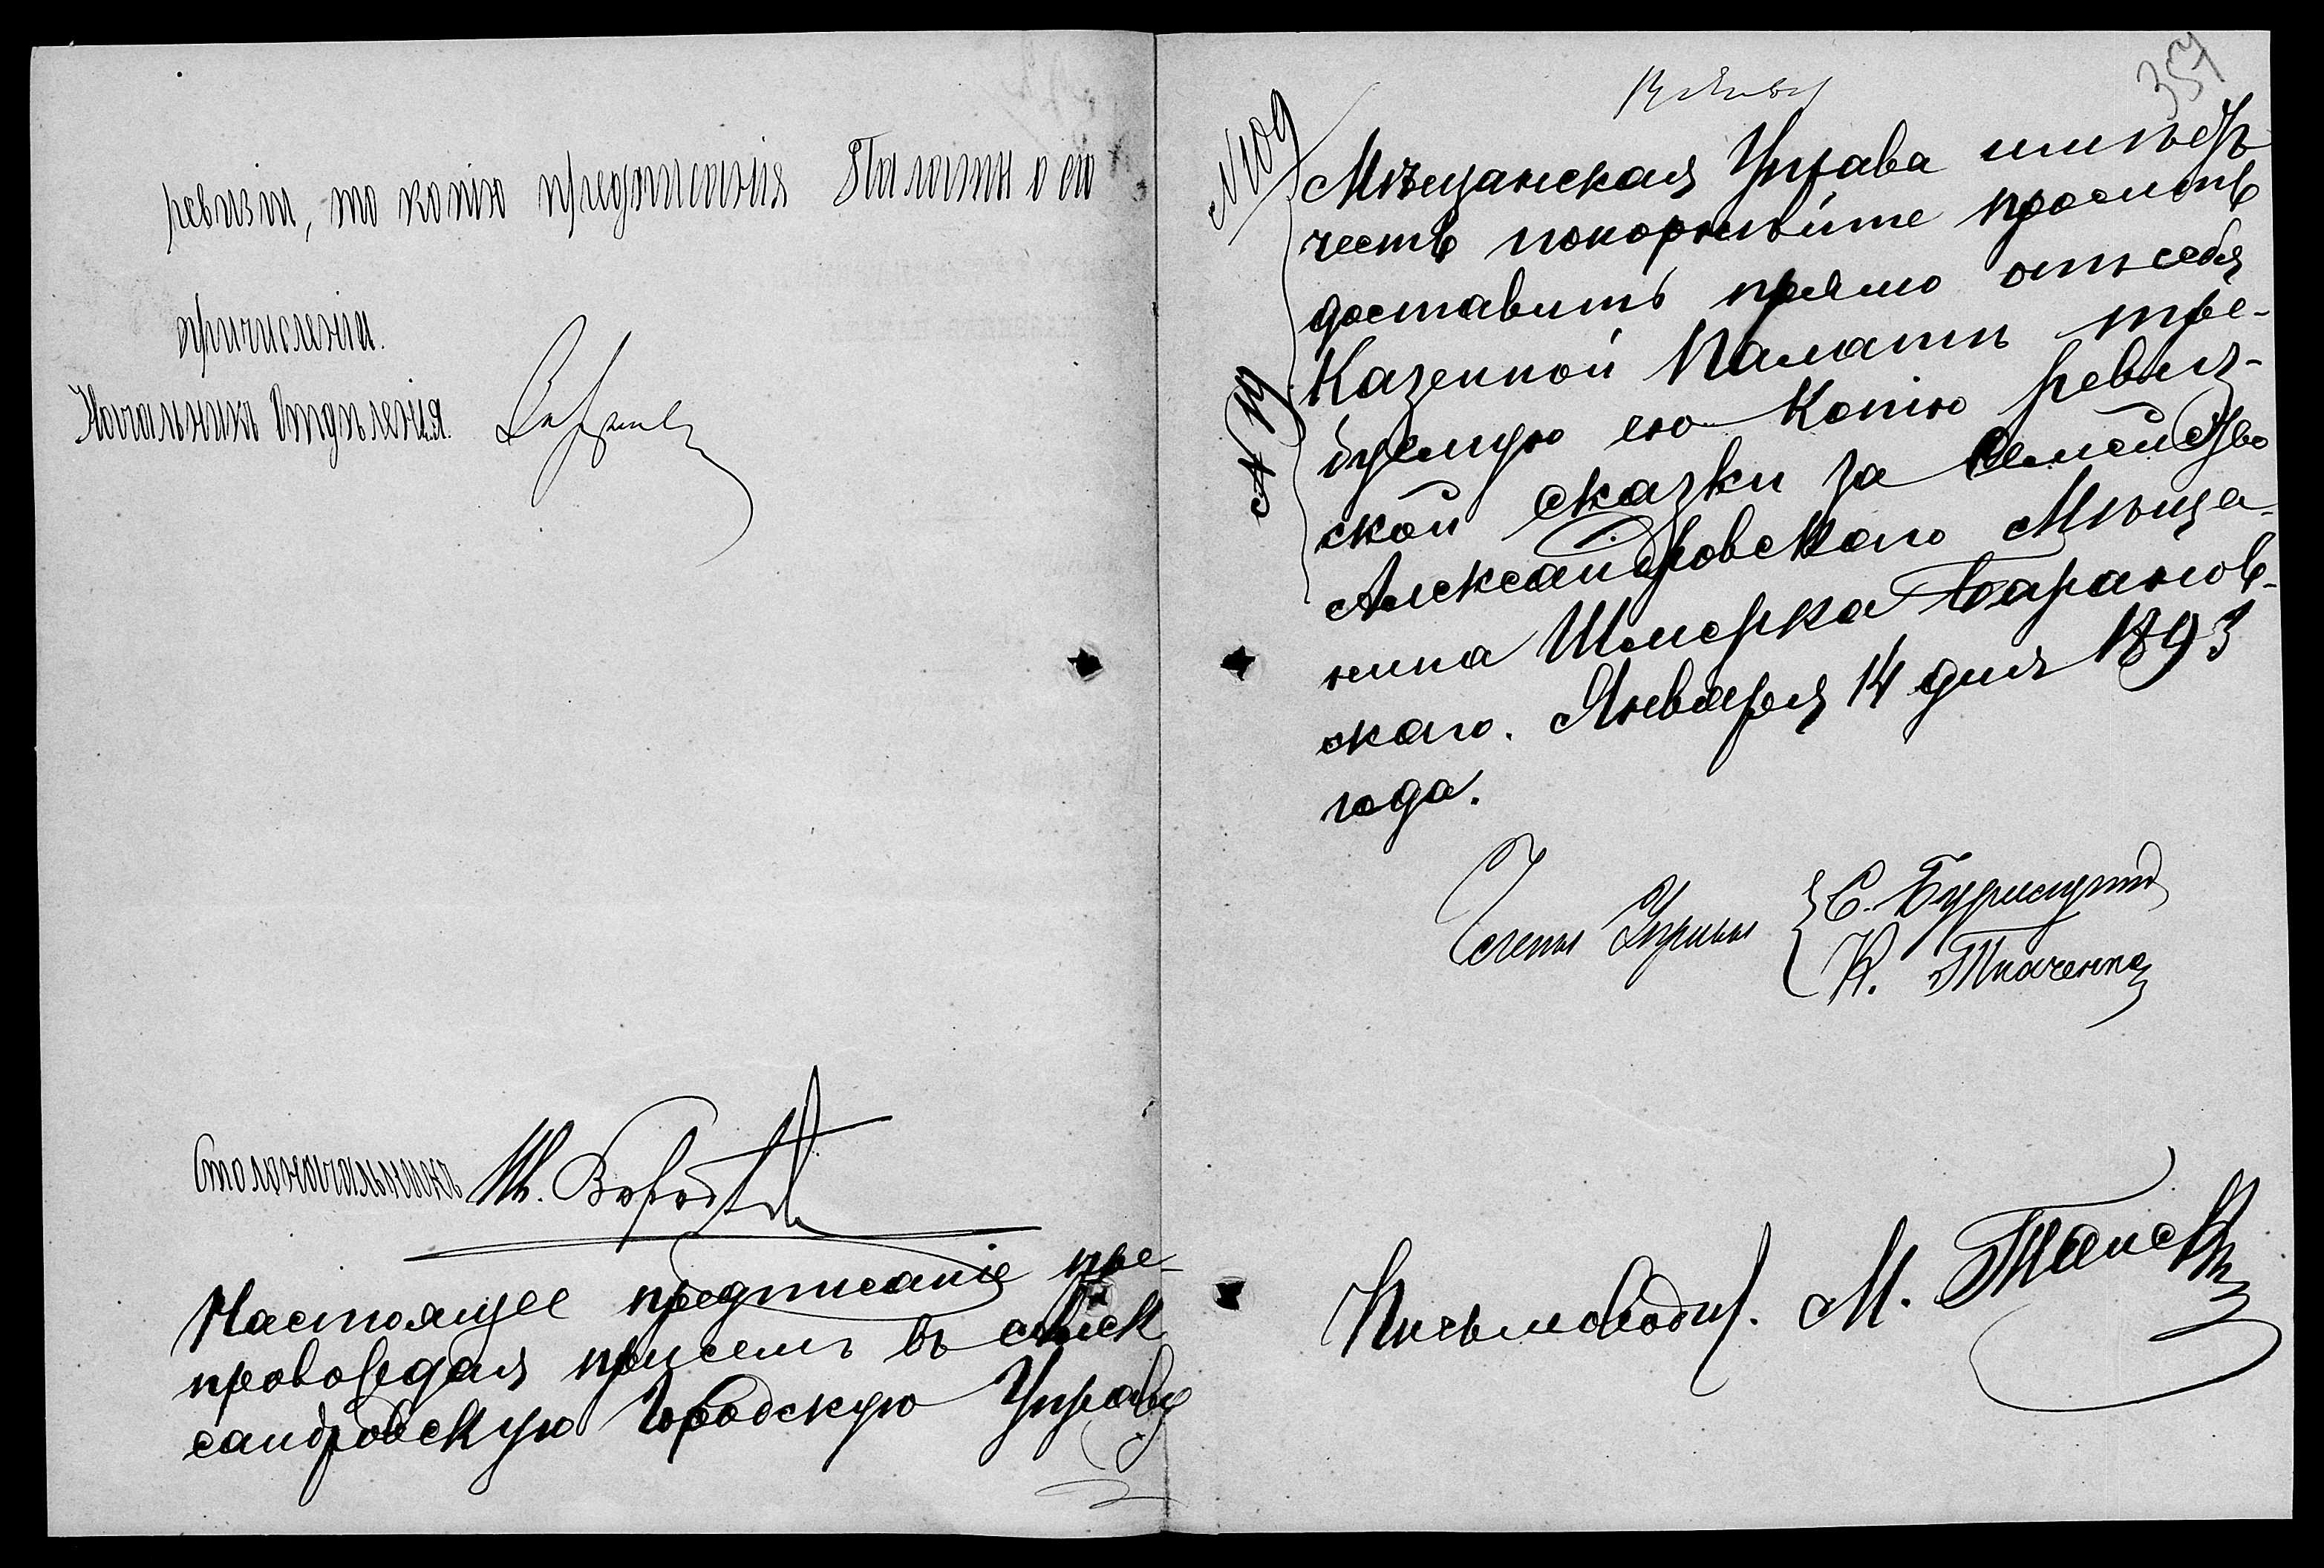 ревизіи, то копію предписанія Палаты о его
причисленіи.
Начальникъ Отдѣленія
Столоначальникъ
Настоящее предписаніе пре-
провождая при семъ въ Алек
сандровскую Городскую Управу
357
№ 109
№ 19
Мѣщанская Управа имѣетъ
честь покорнѣйше просить
доставить прямо отъ себя
Казенной Палатѣ тре-
буемую ею копію ревиз-
ской сказки за семейство
Александровскаго Мѣща-
нина Шмерка Баранов-
скаго. Января 14 дня 1893
года.
Члены Управы
К. Ткаченко
Письмоводит. М.